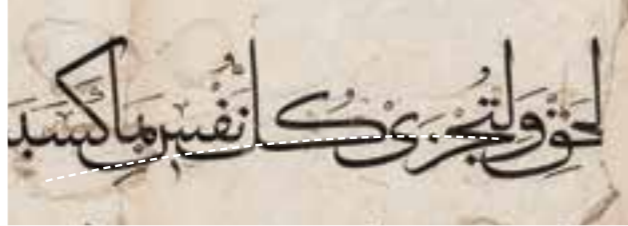 لحَقِّ وَلِتُجْزَىٰ كُلُّ نَفْسٍ بِمَا كَسَبَ